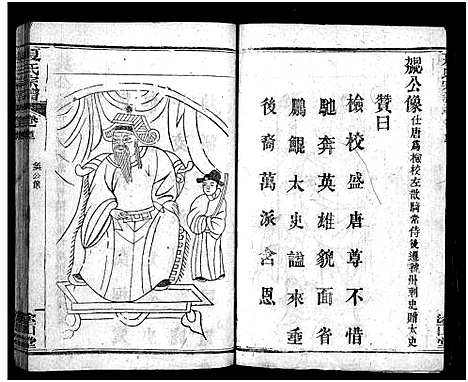 公像 仕唐爲檢校左散騎常侍後遷 州刺史贈太史
贊曰
檢校盛唐尊不惜
馳奔英雄貌面省
鵬鯤太史謚來垂
後裔萬派含恩
公像
夏氏宗譜
堂